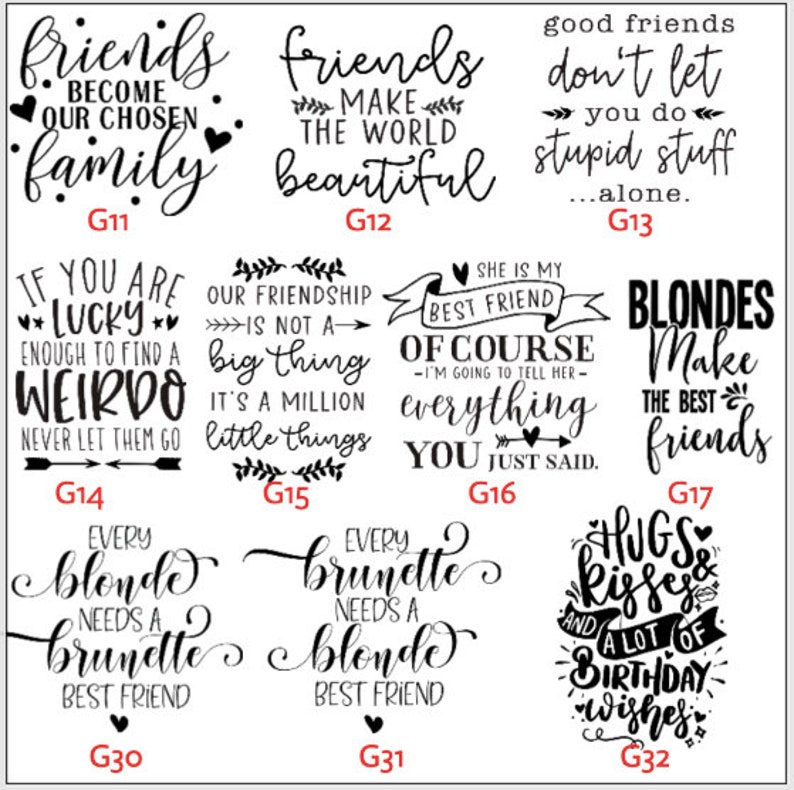 friends
BECOME
OUR CHOSEN
family
G11
friends
MAKE
THE WORLD
beautiful
G12
good friends
don't let
you do
stupid stuff
...alone.
G13
IF YOU ARE
LUCKY
ENOUGH TO FIND A
WEIRDO
NEVER LET THEM GO
G14
OUR FRIENDSHIP
IS NOT A
big thing
IT'S A MILLION
little things
G15
SHE IS MY
BEST FRIEND
OF COURSE
-I'M GOING TO TELL HER-
everything
YOU JUST SAID.
G16
BLONDES
Make
THE BEST
friends
G17
EVERY
blonde
NEEDS A
brunette
BEST FRIEND
G30
EVERY
brunette
NEEDS A
blonde
BEST FRIEND
G31
HUGS &
kisses
AND A LOT OF
BIRTHDAY
wishes
G32